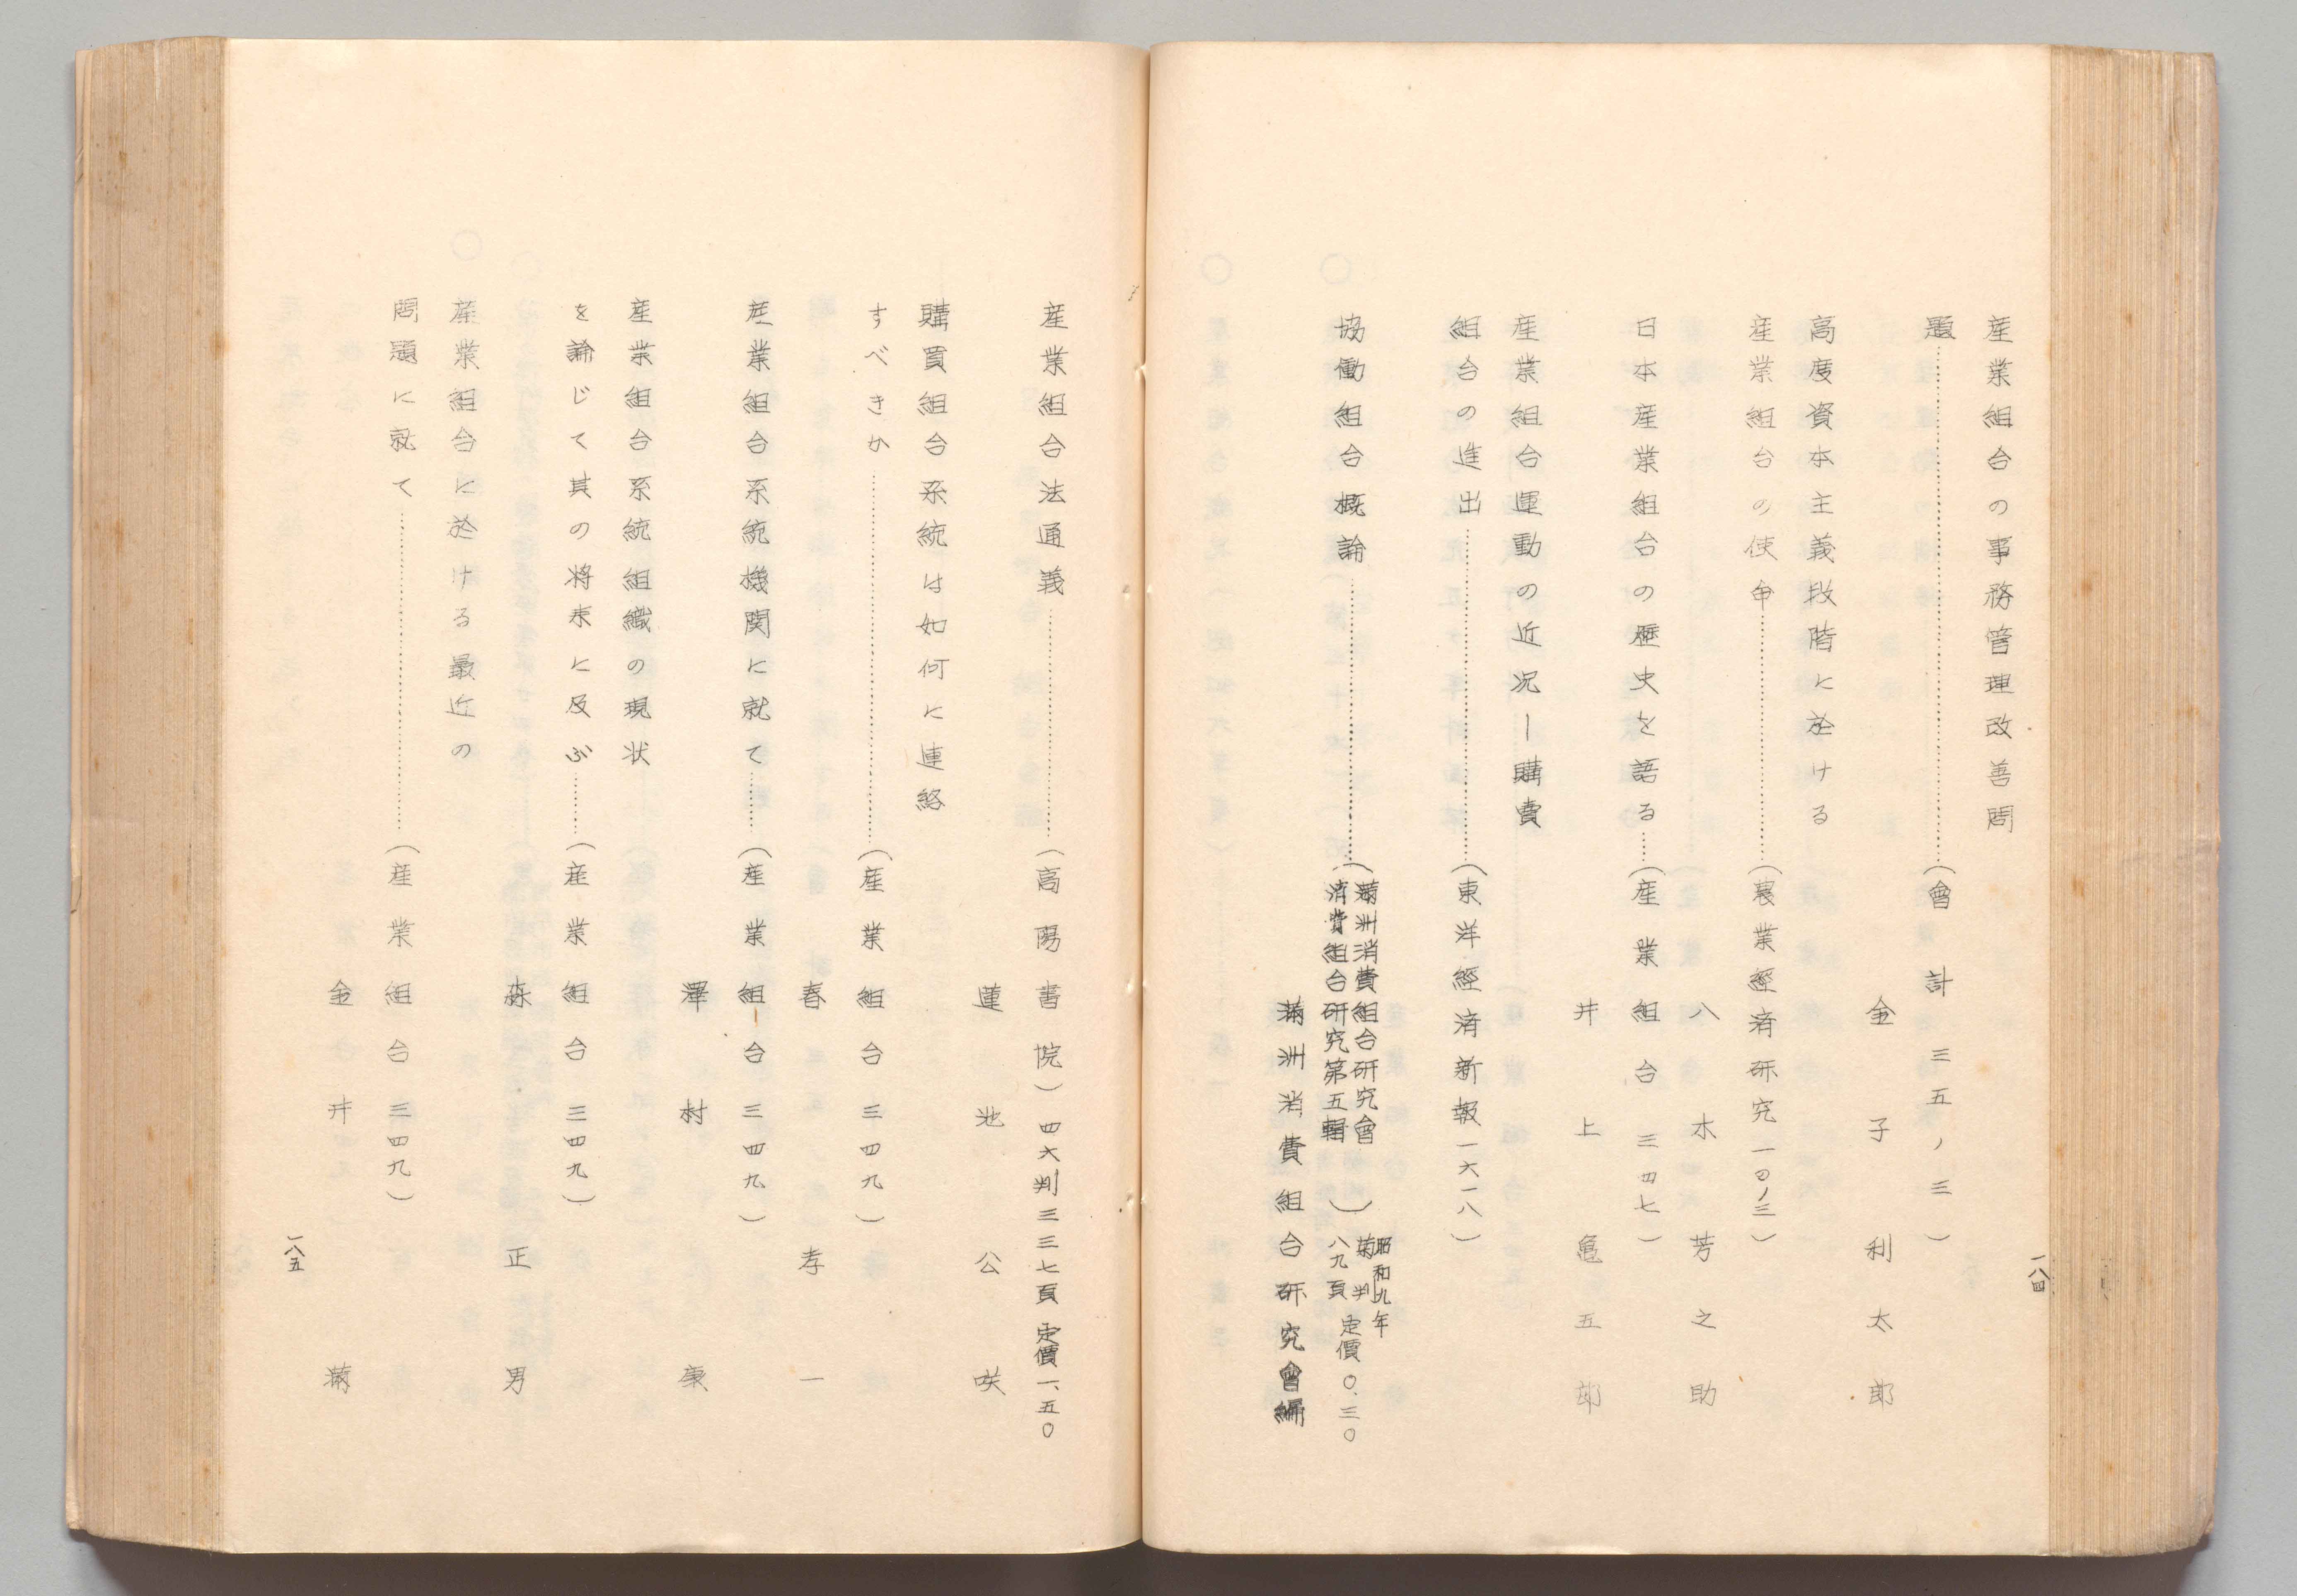 一八四
産業組合の事務管理改善問
題…………(會計 三五ノ三)
金子利太郎
高度資本主義段階に於ける
産業組合の使命…………(農業經済研究一〇ノ三)
八木芳之助
日本産業組合の歴史を語る……(産業組合 三四七)
井上亀五郎
産業組合運動の近況―購買
組合の進出…………(東洋經済新報一六一八)
協働組合概論…………(満洲消費組合研究會 消費組合研究第五輯)昭和九年 菊判 八九頁 定價〇.三〇
満洲消費組合研究會編
産業組合法通義…………(高陽書院)四六判三三七頁 定價一、五〇
蓮池公咲
購買組合系統は如何に連絡
すべきか…………(産業組合 三四九)
春孝一
産業組合系統機関に就て………(産業組合 三四九)
澤村康
産業組合系統組織の現状
を論じて其の将来に及ぶ………(産業組合 三四九)
森正男
産業組合に於ける最近の
問題に就て…………(産業組合 三四九)
金井満
一八五